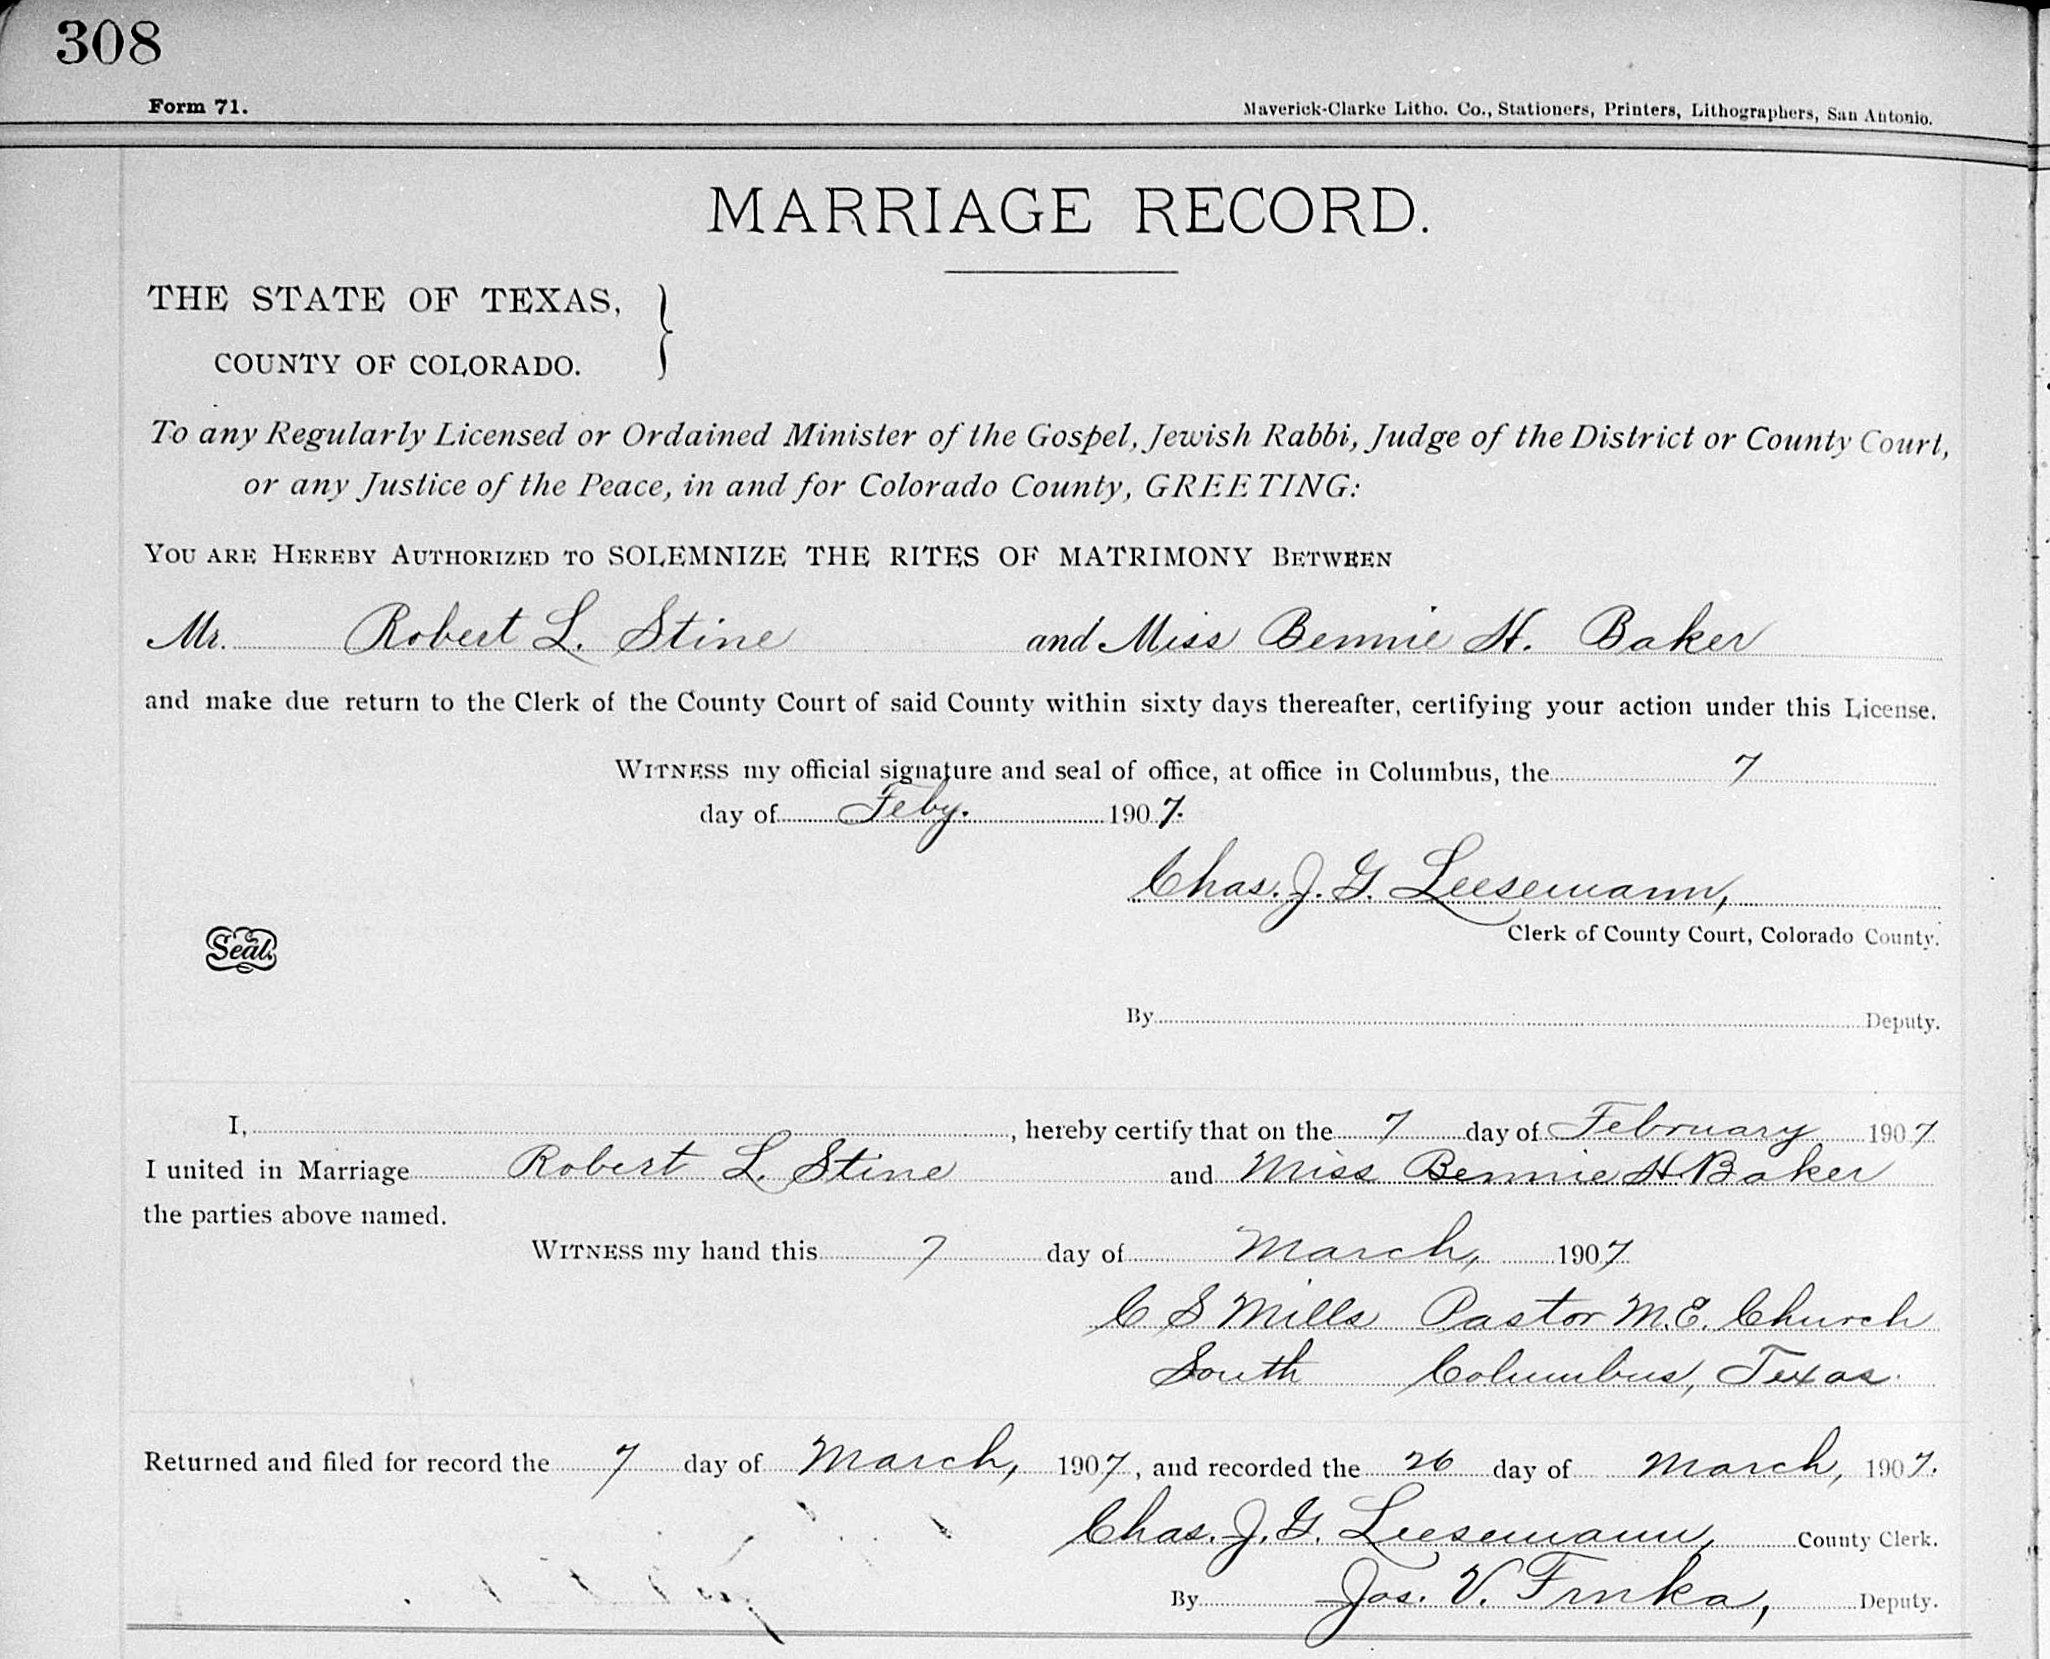 308
Form 71.
Maverick-Clarke Litho. Co., Stationers, Printers, Lithographers, San Antonio.
MARRIAGE RECORD.
THE STATE OF TEXAS, }
COUNTY OF COLORADO.
To any Regularly Licensed or Ordained Minister of the Gospel, Jewish Rabbi, Judge of the District or County Court,
or any Justice of the Peace, in and for Colorado County, GREETING:
YOU ARE HEREBY AUTHORIZED TO SOLEMNIZE THE RITES OF MATRIMONY BETWEEN
Mr. Robert L. Stine and Miss Bennie H. Baker
and make due return to the Clerk of the County Court of said County within sixty days thereafter, certifying your action under this License.
WITNESS my official signature and seal of office, at office in Columbus, the 7
day of Feby. 1907.
Chas. J. G. Leesemann,
Clerk of County Court, Colorado County.
Seal.
By Deputy.
I, , hereby certify that on the 7 day of February 1907
I united in Marriage Robert L. Stine and Miss Bennie H. Baker
the parties above named.
WITNESS my hand this 7 day of March, 1907
C S Mills Pastor M.E. Church
South Columbus, Texas.
Returned and filed for record the 7 day of March, 1907, and recorded the 26 day of March, 1907.
Chas. J. G. Leesemann, County Clerk.
By Jos. V. Frnka, Deputy.